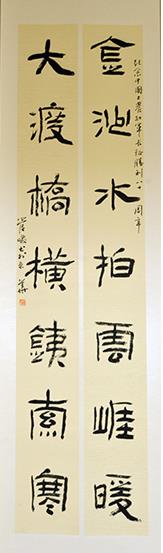 纪念中国工农红军长征胜利八十周年
金沙水拍云崖暖
大渡桥横铁索寒